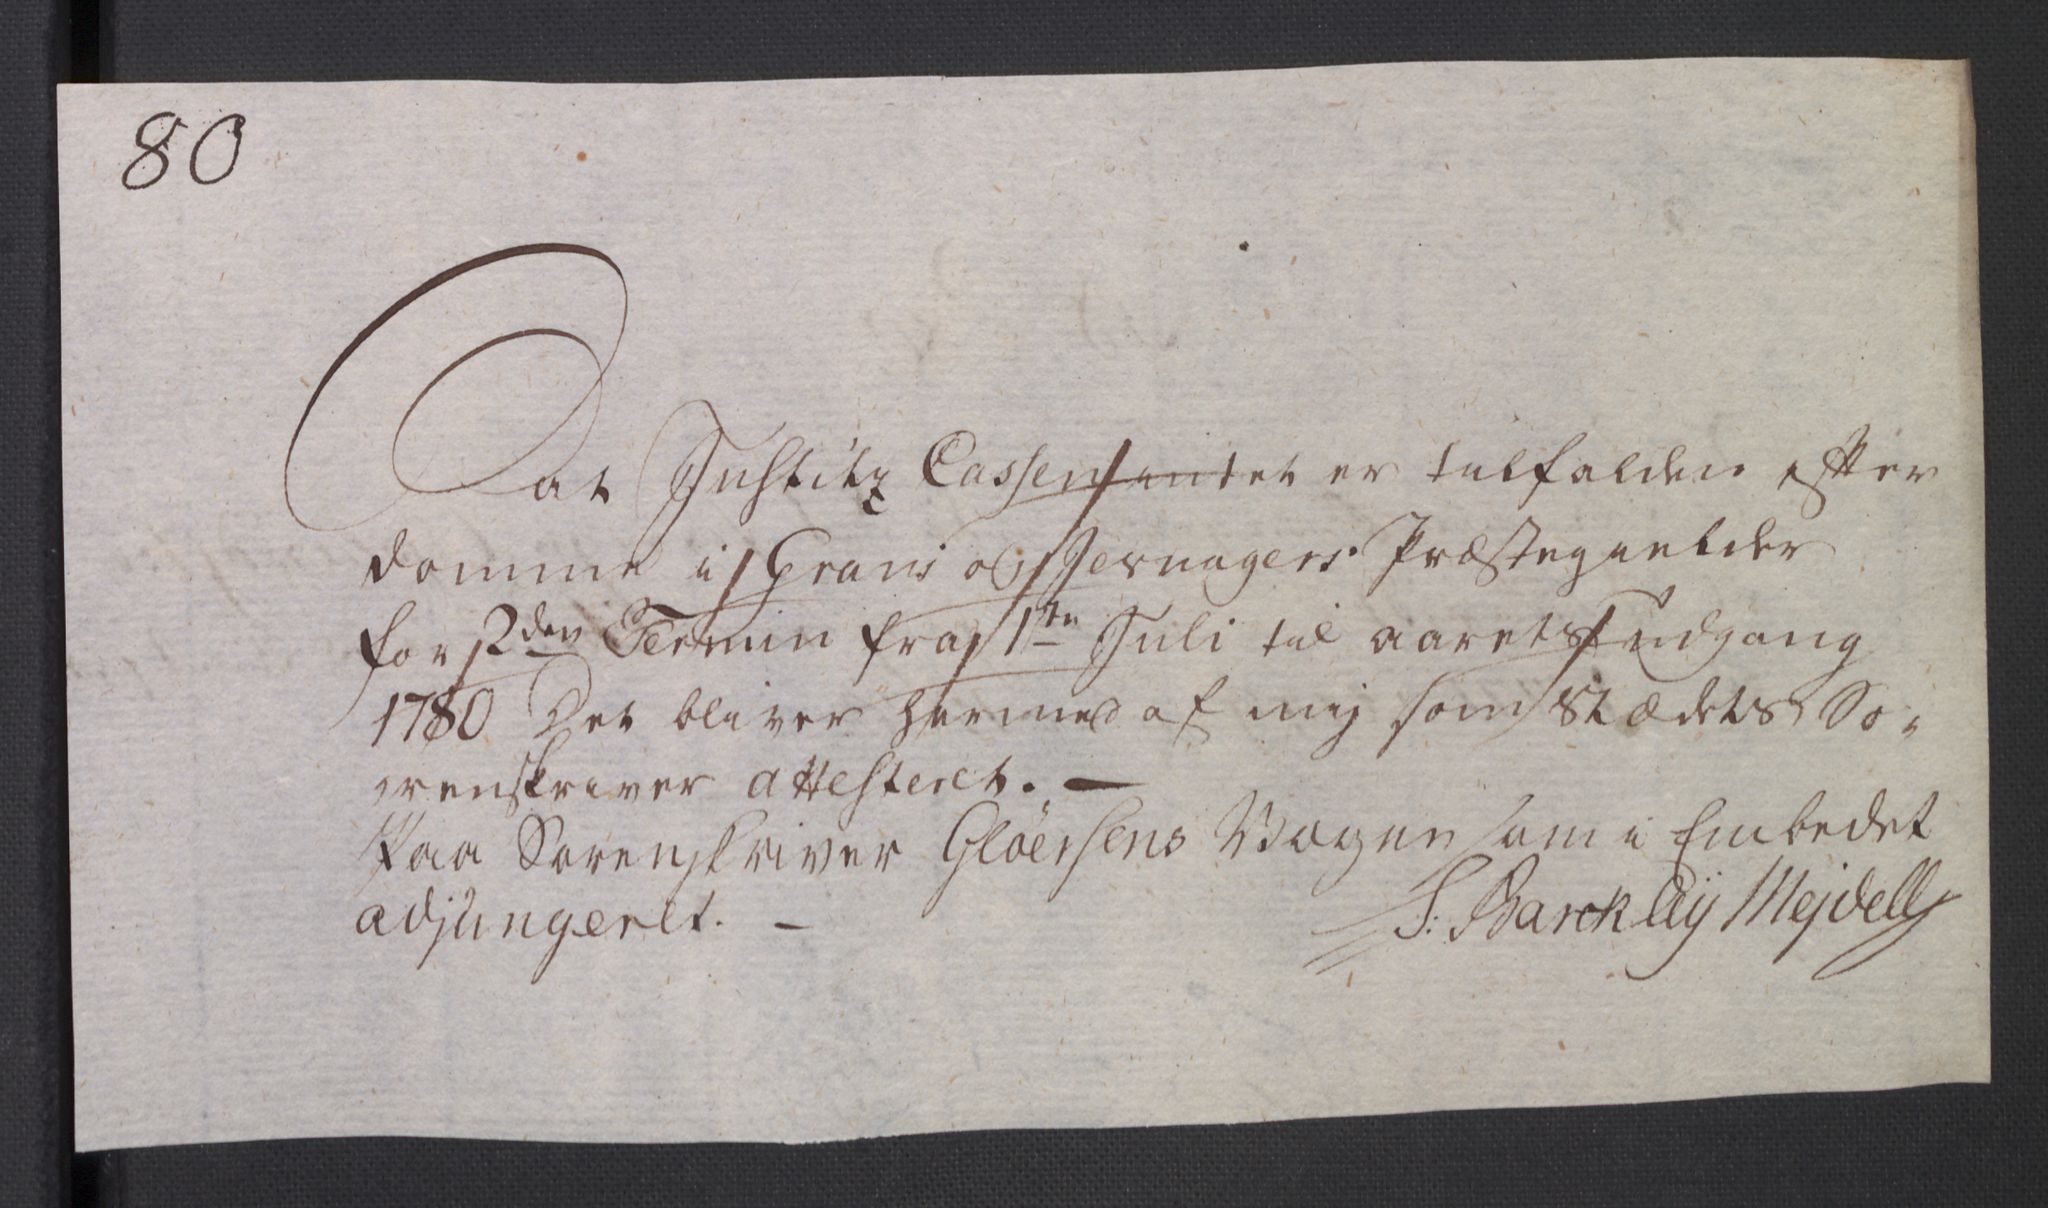 80
At Justitz Cassen intet er tilfalden efter
domme i Grans og Jevnagers Præstegielder
for 2den Termin fra 1te Juli til aarets udgang
1780 Det bliver hermed af mig som Stædets So-
renskriver attesteret. —
Paa Sorenskriver Glöersens Vegne som i Embedet
adjungeret. —
S: Barcklöy Mejdell